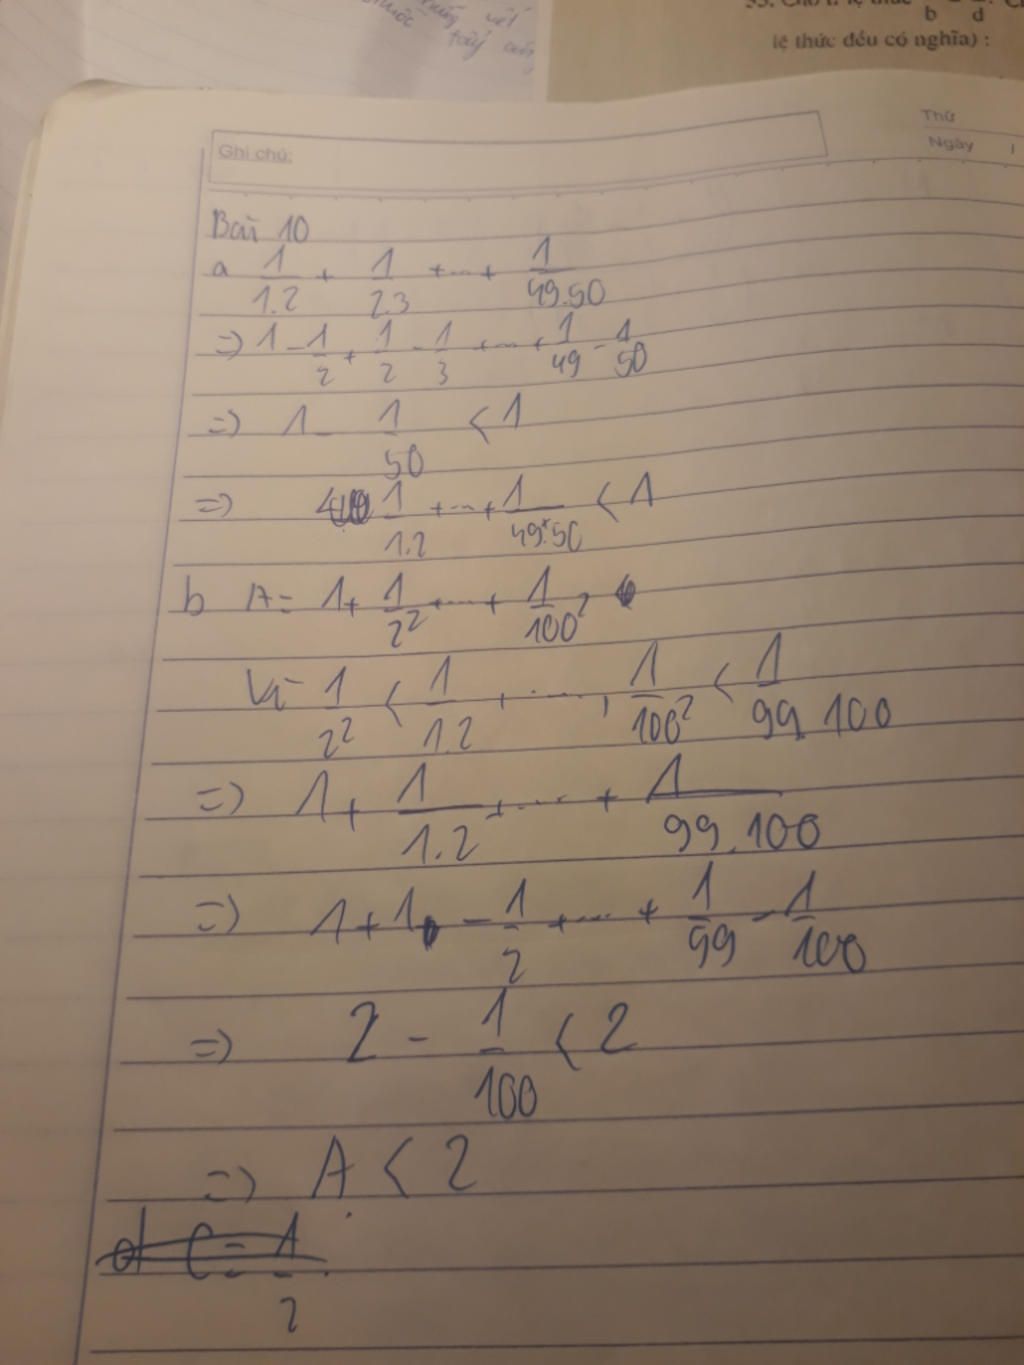 trừng viết
thuộc
tùy
b d
lệ thức đều có nghĩa) :
Thứ
Ngày /
Ghi chú:
Bài 10
a 1/1.2 + 1/2.3 + ... + 1/49.50
=> 1 - 1/2 + 1/2 - 1/3 + ... + 1/49 - 1/50
=> 1 - 1/50 < 1
=> 1/1.2 + ... + 1/49.50 < 1
b A = 1 + 1/2² + ... + 1/100²
Vì 1/2² < 1/1.2 , ... , 1/100² < 1/99.100
=> 1 + 1/1.2 + ... + 1/99.100
=> 1 + 1 - 1/2 + ... + 1/99 - 1/100
=> 2 - 1/100 < 2
=> A < 2
d C = 1/2